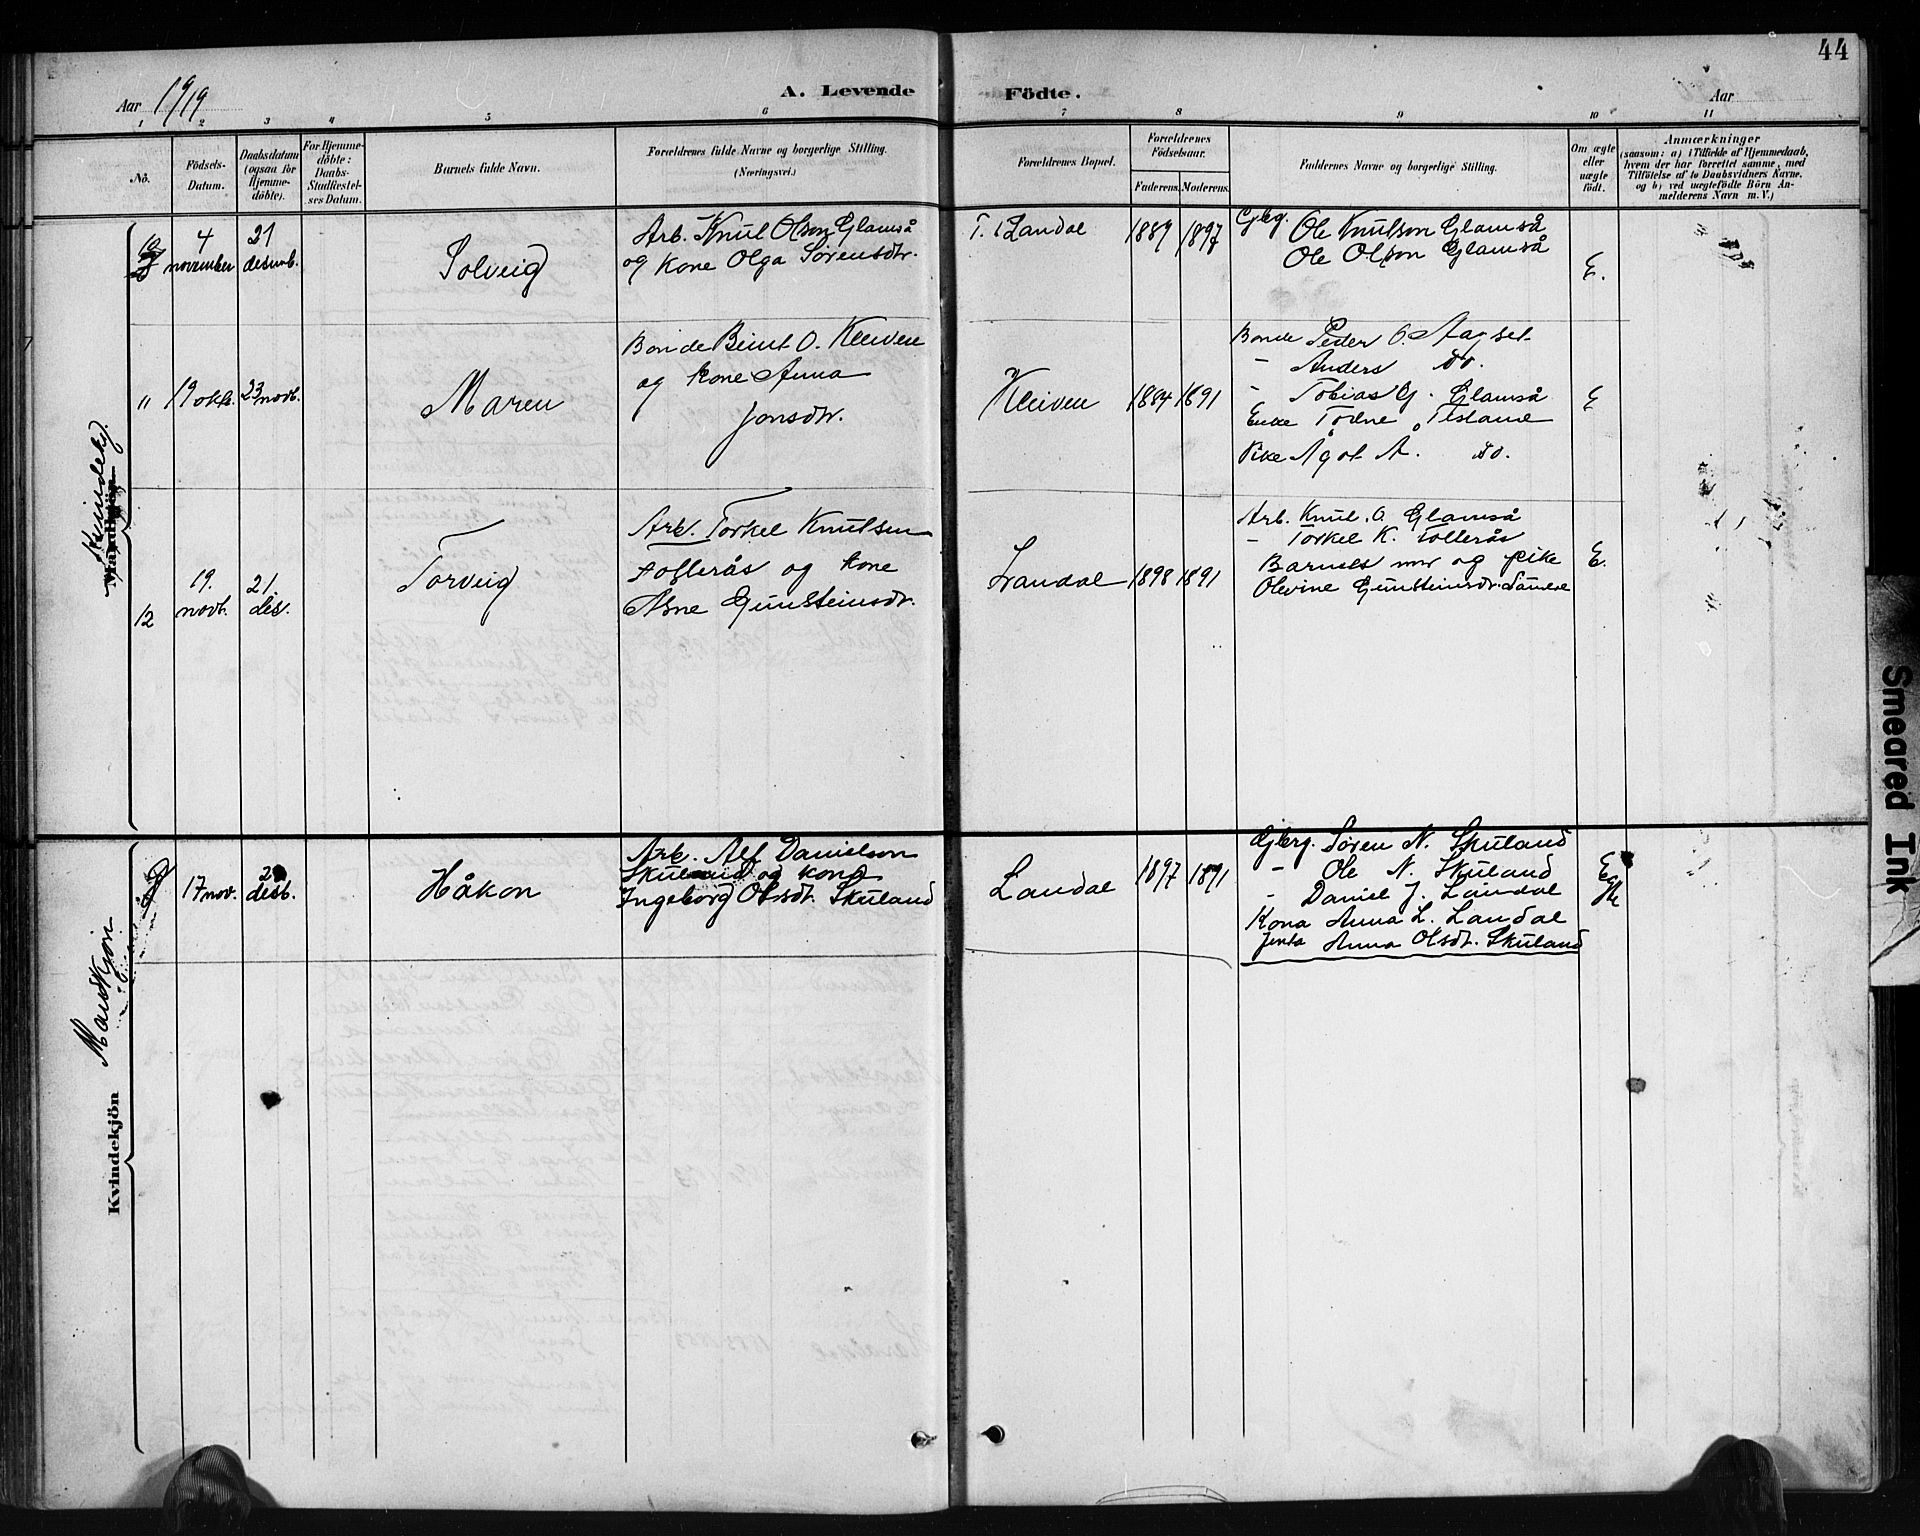 44
Aar 1919
A. Levende Födte.
Aar
1 2 3 4 5 6 7 8 9 10 11
No.
Födsels-Datum.
Daabsdatum (ogsaa for Hjemme-döbte).
For Hjemme-döbte: Daabs-Stadfæstel-ses Datum.
Barnets fulde Navn.
Forældrenes fulde Navne og borgerlige Stilling. (Næringsvei.)
Forældrenes Bopæl.
Forældrenes Födselsaar.
Faderens. Moderens.
Faddernes Navne og borgerlige Stilling.
Om ægte eller uægte födt.
Anmærkninger
(saasom: a) i Tilfælde af Hjemmedaab,
hvem der har forrettet samme, med
Tilföielse af to Daabsvidners Navne.
og b) ved uægtefödte Börn An-
melderens Navn m. V.)
Mandkjön
10
4 november
21 desemb.
Solveig
Arb. Knut Olson Glamså
og kone Olga Sørensdtr.
T. Landal
1889 1897
Gbrg. Ole Knutson Glamså
Ole Olson Glamså
E.
11
19 okt.
23 novb.
Maren
Bonde Beint O. Kleiven
og kone Anna
Jonsdtr.
Kleiven
1884 1891
Bonde Peder O. Aagset
- Anders do.
- Tobias G. Glamså
Enke Todne Tesland
Pike Ågot A. do.
E
12
19. novb.
21. des.
Torveig
Arb. Torkel Knutsen
Tollerås og kone
Asne Gunsteinsdt.
Landal
1898 1891
Arb. Knut O. Glamså
- Torkel K. Tollerås
Barnets mor og pike
Olevine Gunsteinsdt.
E.
Kvindekjön
Mandkjön
17 nov.
desb.
Håkon
Arb. Alf Danielson
Skuland og kona
Ingeborg Olsdt. Skuland
Landal
1897 1891
Gjbrg. Søren N. Skuland
- Ole N. Skuland
- Daniel J. Landal
Kona Anna L. Landal
Jenta Anna Olsdt. Skuland
Smeared Ink